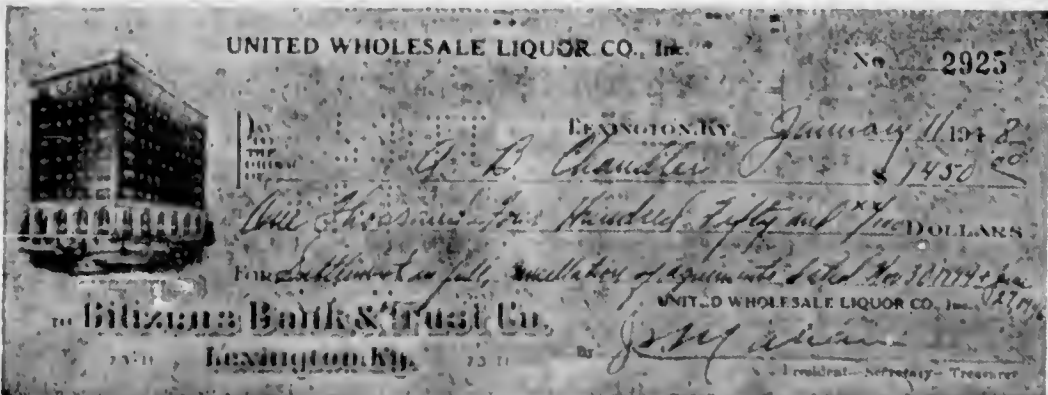 UNITED WHOLESALE LIQUOR CO., Inc.
No. 2925
LEXINGTON, KY. January 11 1948
PAY TO THE ORDER OF A. B. Chandler $1450 00
One Thousand Four Hundred Fifty and xx/100 DOLLARS
FOR Settlement in full, cancellation of agreements dated Nov 30 1944 &
UNITED WHOLESALE LIQUOR CO., Inc.
TO Citizens Bank & Trust Co.
Lexington, Ky.
73-11 73-11
BY
President—Secretary—Treasurer